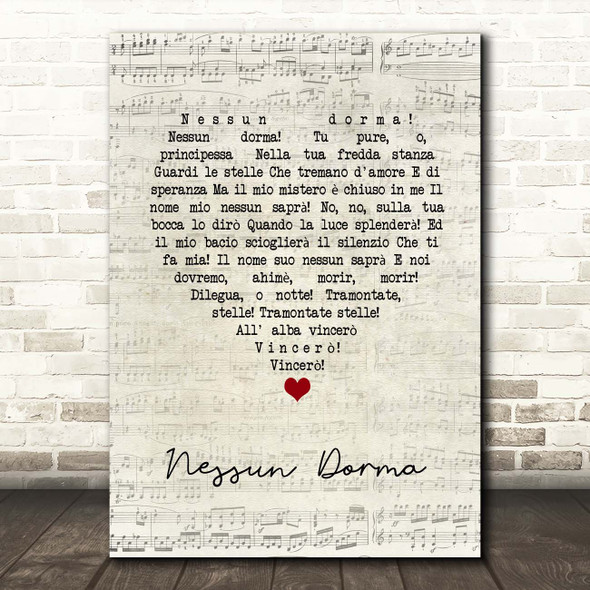 Nessun dorma!
Nessun dorma! Tu pure, o,
principessa Nella tua fredda stanza
Guardi le stelle Che tremano d'amore E di
speranza Ma il mio mistero è chiuso in me Il
nome mio nessun saprà! No, no, sulla tua
bocca lo dirò Quando la luce splenderà! Ed
il mio bacio scioglierà il silenzio Che ti
fa mia! Il nome suo nessun saprà E noi
dovremo, ahimè, morir, morir!
Dilegua, o notte! Tramontate,
stelle! Tramontate stelle!
All' alba vincerò
Vincerò!
Vincerò!
Nessun Dorma